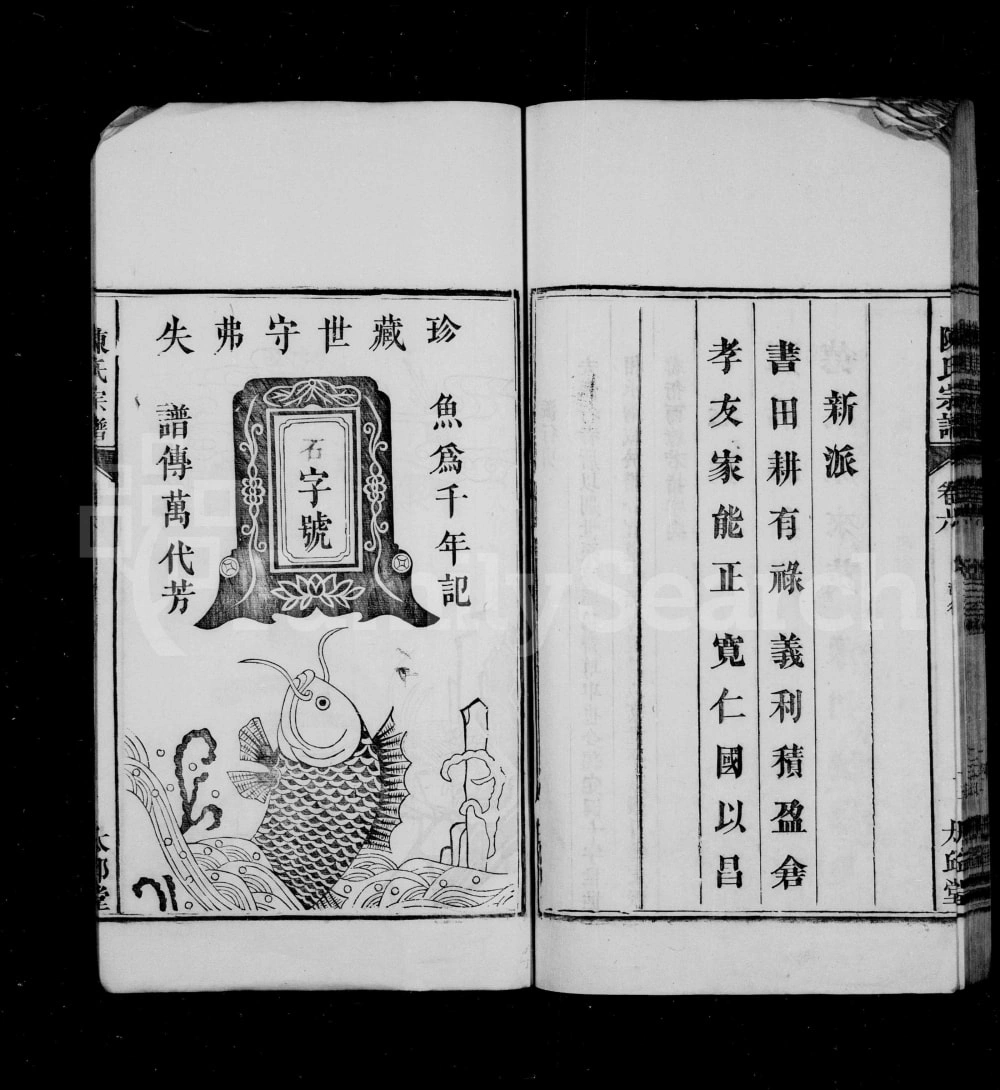 新派
書田耕有祿 義利積盈倉
孝友家能正 寬仁國以昌
陳氏宗譜
卷六
珍藏世守弗失
魚爲千年記
石字號
譜傳萬代芳
陳氏宗譜
FamilySearch